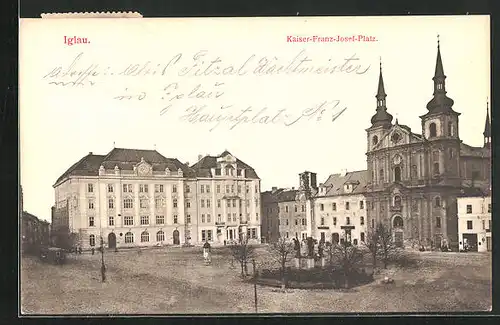 Iglau.
Kaiser-Franz-Josef-Platz.
Adresse: Adolf Pitzal Wachtmeister
in Iglau
Hauptplatz No 1